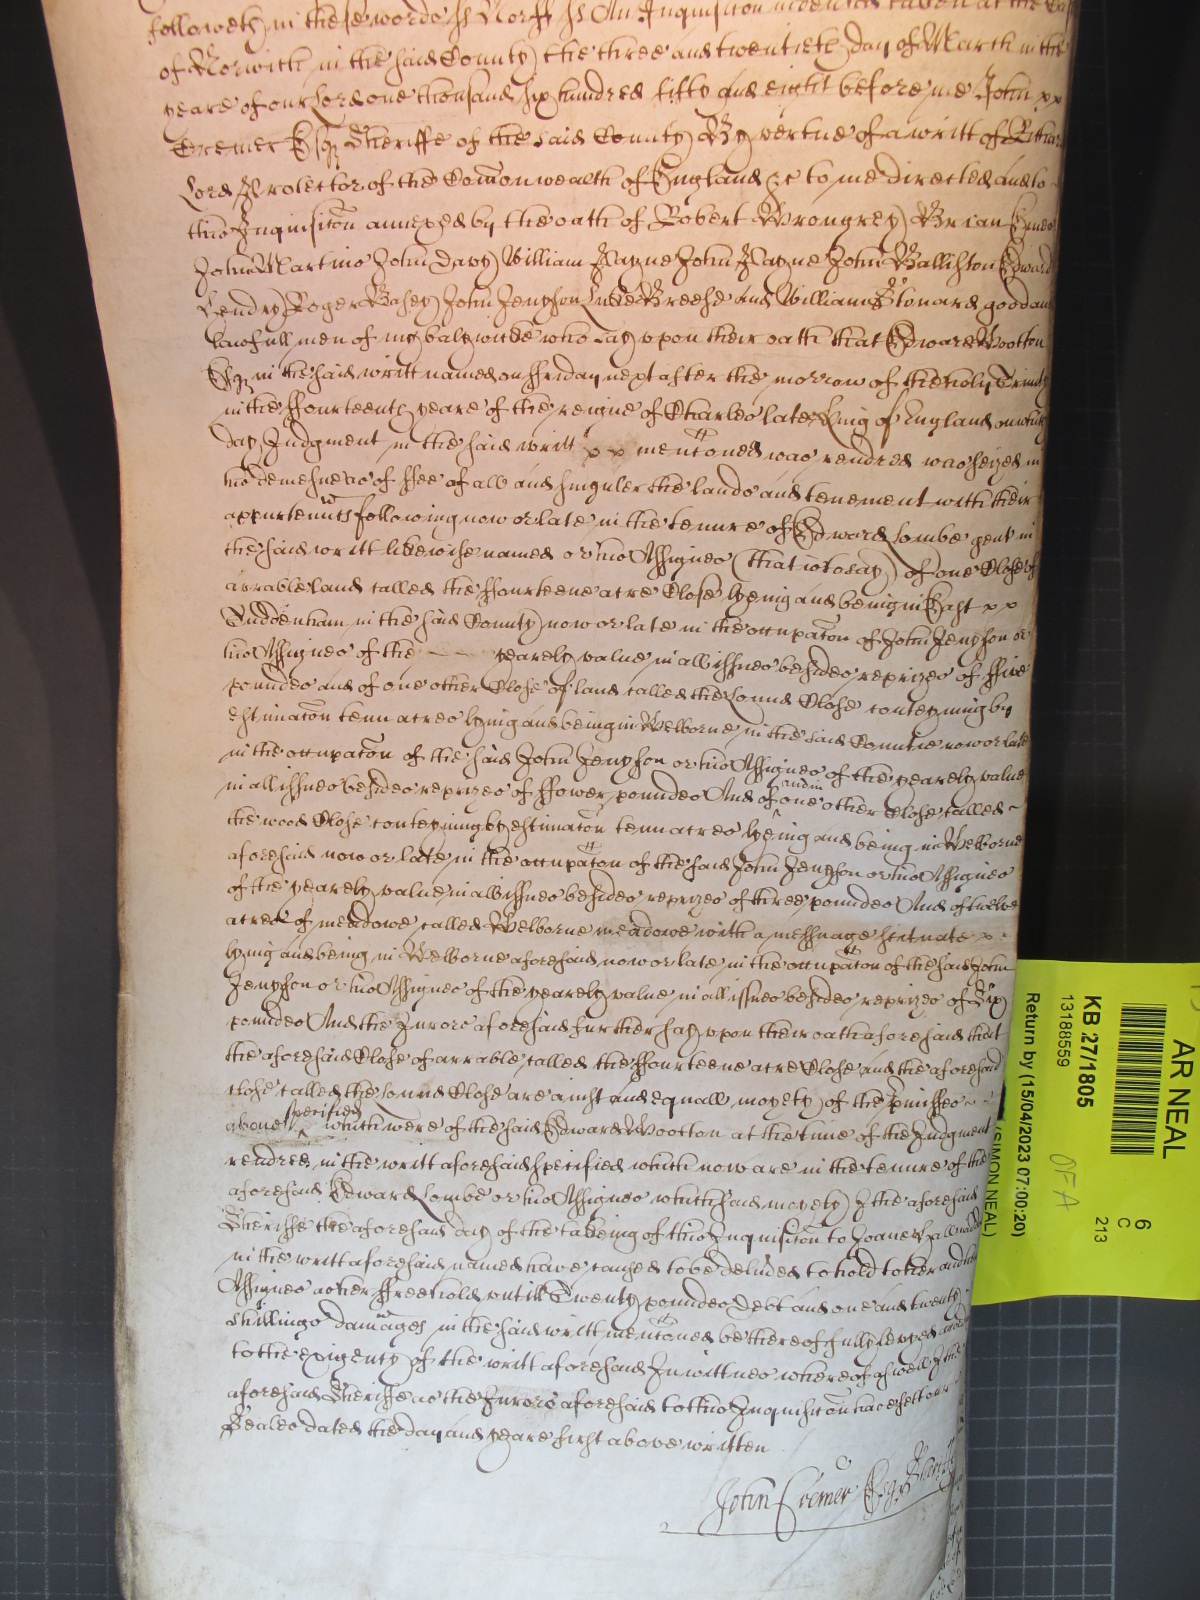 followeth in these words ss Norff ss An Inquisicon indented taken at the
of Norwich in the said County the three and twentieth day of March in the
yeare of our Lord one thousand six hundred fifty and eight before me John xx
Cremer Esqr Sheriffe of the said County By vertue of a writt of Richard
Lord Protector of the Comonwealth of England &c to me directed and to
this Inquisicon annexed by the oath of Robert Wrongrey Brian
John Martins John Davy William Payne John Payne John Balliston Edward
Lendry Roger Basey John Jenyson Luke Breese and William Stonard good and
lawfull men of my baliwicke who say upon their oath that Edward Wootton
Esqr in the said writt named on ffriday next after the morrow of the holy Trinity
in the ffourteenth yeare of the reigne of Charles late King of England on which
day Judgment in the said writt xx mentoned was rendred was seized in
his demesne as of ffee of all and singuler the lands and tenement with their
appurtenncs following now or late in the tenure of Edward Lombe gent in
the said writt likewise named or his Assignes (that is to say) of one Close of
arrable land called the ffourteene acre Close lyeing and being in East xx
Tuddenham in the said County now or late in the occupacon of John Jenyson or
his Assignes of the yearely value in all issues besides reprizes of ffive
poundes and of one other Close of land called the Lound Close conteyning by
estimacon tenn acres lying and being in Welborne in the said Countie now or late
in the occupacon of the said John Jenyson or his Assignes of the yearely value
in all issues besides reprizes of ffower poundes And of one other Close called
the wood Close conteyning by estimacon tenn acres lyeing and being in Welborne
aforesaid now or late in the occupacon of the said John Jenyson or his Assignes
of the yearely value in all issues besides reprizes of three poundes And of twelve
acres of meadowe called Welborne meadowe with a messuage scituate x
lying and being in Welborne aforesaid now or late in the occupacon of the said John
Jenyson or his Assignes of the yearely value in all issues besides reprizes of Six
poundes And the Jurors aforesaid further say upon their oath aforesaid that
the aforesaid Close of arrable called the ffourteene acre Close and the aforesaid
close called the Lound Close are a iust and equall moyety of the pmisses
above specified which were of the said Edward Wootton at the time of the Judgment
rendred in the writt aforesaid specified which now are in the tenure of the
aforesaid Edward Lombe or his Assignes which said moyety I the aforesaid
Sheriffe the aforesaid day of the takeing of this Inquisicon to Joane
in the writt aforesaid named have caused to be delived to hold to her and her
Assignes as her ffreehold untill Twenty poundes debt and one and twenty
shillings damages in the said writt mentoned be thereof fully levyed
to the exigency of the writt aforesaid In wittnes whereof aswell I the
aforesaid Sheriffe as the Jurors aforesaid to this Inquisicon have sett our
Seales dated the day and yeare first above written
John Cremer Esqr Sheriffe
AR NEAL
6
C
213
KB 27/1805
13188559
OFA
Return by (15/04/2023 07:00:20)
(SIMON NEAL)